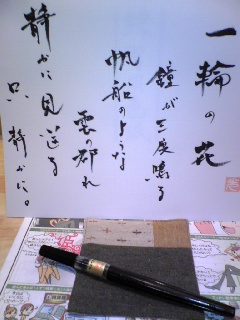 一輪の花
鐘が三度鳴る
帆船のような
雲の群れ
静かに見送る
只、静かに。